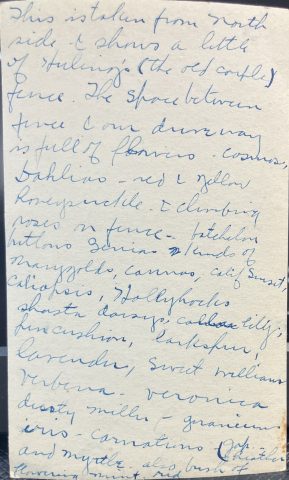 This is taken from North
side & shows a little
of Huling's (the old couple)
fence. The space between
fence & our driveway
is full of flowers - cosmos,
Dahlias - red & yellow
honeysuckle - & climbing
roses on fence - batchelor
buttons Zenias kinds of
marygolds, cannas, calif Sunset,
caliopsis, Hollyhocks
shasta daisys, lilly's,
pincushion, larkspur,
lavender, sweet williams
verbena - veronica
dusty miller - geraniums
iris - carnations (Jap.
and myrtle - also bush of
flowering mint - red